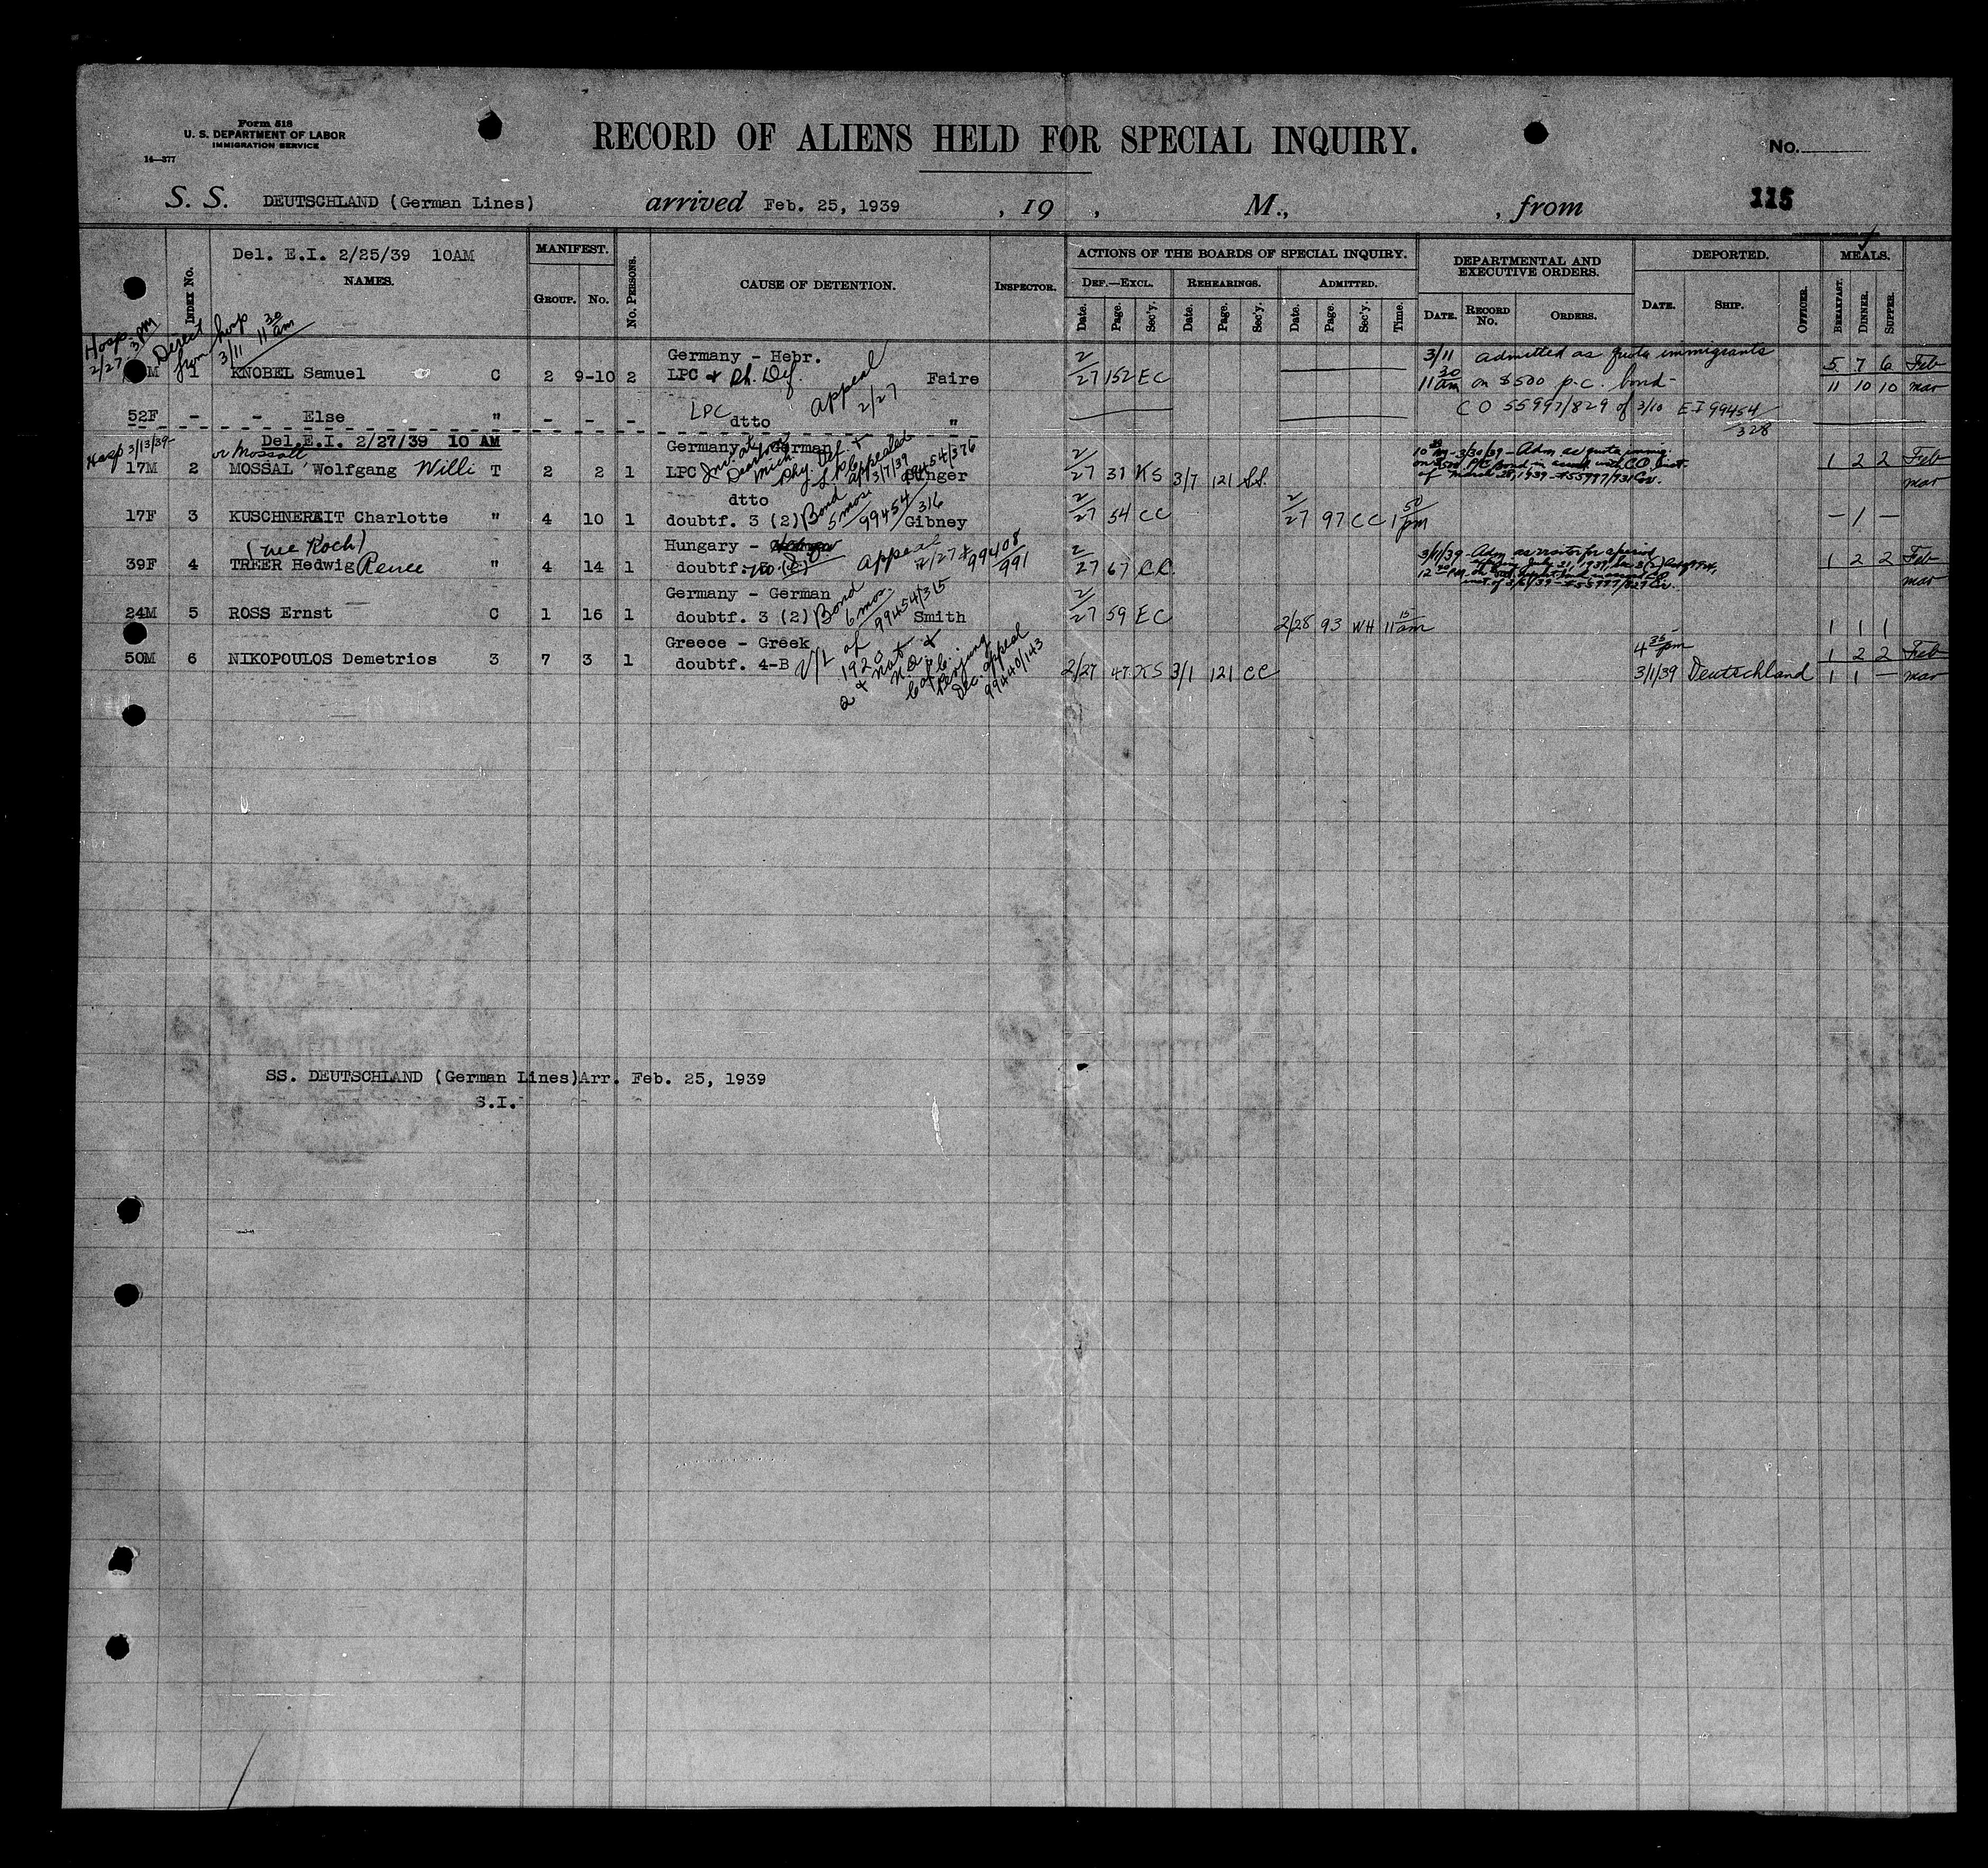 Form 518
U. S. DEPARTMENT OF LABOR
IMMIGRATION SERVICE
14—377
RECORD OF ALIENS HELD FOR SPECIAL INQUIRY.
No.
S. S. DEUTSCHLAND (German Lines) arrived Feb. 25, 1939 , 19 , M., , from 115
Del. E.I. 2/25/39 10AM
INDEX No. NAMES. MANIFEST. GROUP. No. No. PERSONS. CAUSE OF DETENTION. INSPECTOR.
ACTIONS OF THE BOARDS OF SPECIAL INQUIRY.
DEF.—EXCL. REHEARINGS. ADMITTED.
Date. Page. Sec'y. Date. Page. Sec'y. Date. Page. Sec'y. Time.
DEPARTMENTAL AND EXECUTIVE ORDERS.
DATE. RECORD No. ORDERS.
DEPORTED.
DATE. SHIP. OFFICER.
MEALS.
BREAKFAST. DINNER. SUPPER.
Hosp. 2/27 3 PM
from hosp 3/11 11 30 am
Germany - Hebr.
M 1 KNOBEL Samuel C 2 9-10 2 LPC & Ph. Def. Appeal 2/27 Faire 2/27 152 EC
3/11 admitted as quota immigrants 5 7 6 Feb
11 30 am on $500 p.c. bond- 11 10 10 mar
52F - - Else " - - - LPC dtto "
C O 55997/829 of 3/10 EI 99454/328
Del.E.I. 2/27/39 10 AM
Hosp 3/13/39-
or Mossall
Germany - German
17M 2 MOSSAL Wolfgang Willi T 2 2 1 LPC Phy. Def + appealed 3/7/39 99454/376 2/27 31 KS 3/7 121 SS.
10 30 AM - 3/30/39 - Adm as quota immig.
on $500 P/C Bond in accord. with CO inst.
of March 28, 1939 - #55997/931 Cov.
1 2 2 Feb
mar
dtto
17F 3 KUSCHNEREIT Charlotte " 4 10 1 doubtf. 3 (2) Bond 5 mos. 99454/316 Gibney 2/27 54 CC 2/27 97 CC 1 50 pm - 1 -
(nee Koch)
Hungary -
39F 4 TREER Hedwig Renee " 4 14 1 doubtf. Appeal 2/27 99408/991 2/27 67 CC.
3/11/39 - Adm. as visitor for a period
1 2 2 Feb
mar
Germany - German
24M 5 ROSS Ernst C 1 16 1 doubtf. 3 (2) Bond 6 mos. 99454/315 Smith 2/27 59 EC 2/28 93 WH 11 15 am 1 1 1
Greece - Greek
50M 6 NIKOPOULOS Demetrios 3 7 3 1 doubtf. 4-B V/L of 1920 Perjury Dec. appeal 99440/143 2/27 47 KS 3/1 121 CC
4 35 pm 1 2 2 Feb
3/1/39 Deutschland 1 1 - mar
SS. DEUTSCHLAND (German Lines)Arr. Feb. 25, 1939
S.I.